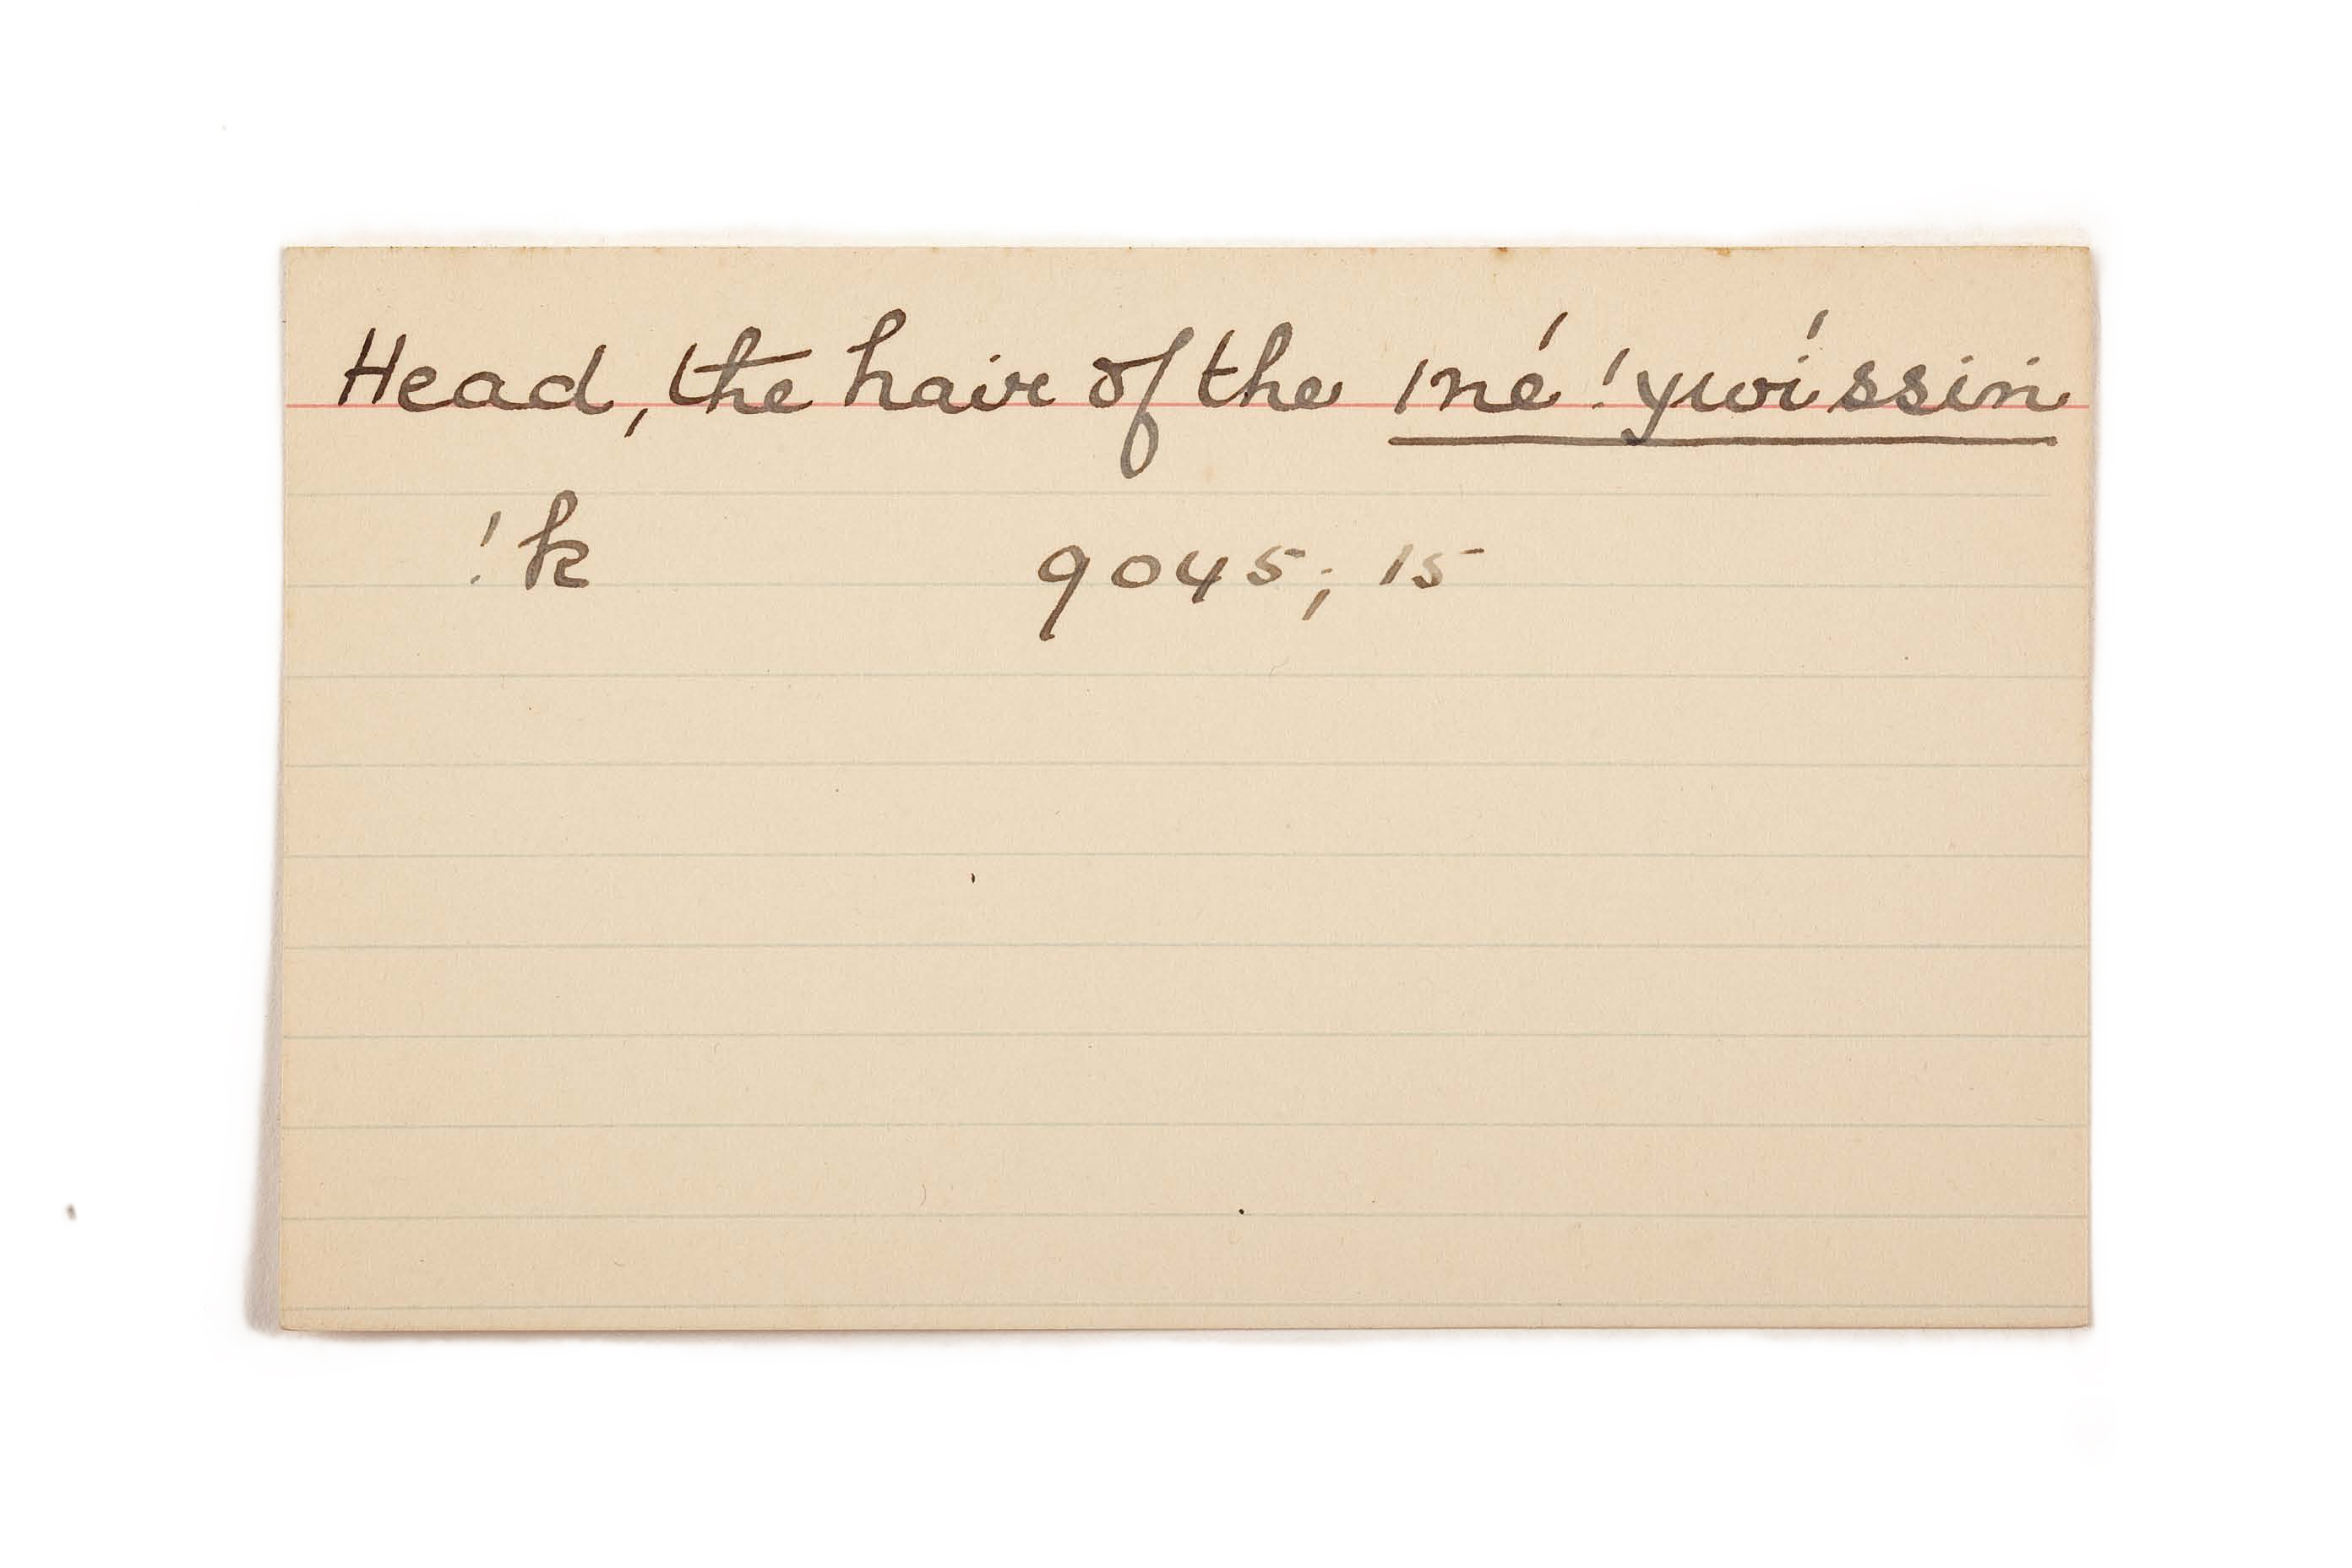 Head, the hair of the ıné !ywí ssin
!k 9045; 15